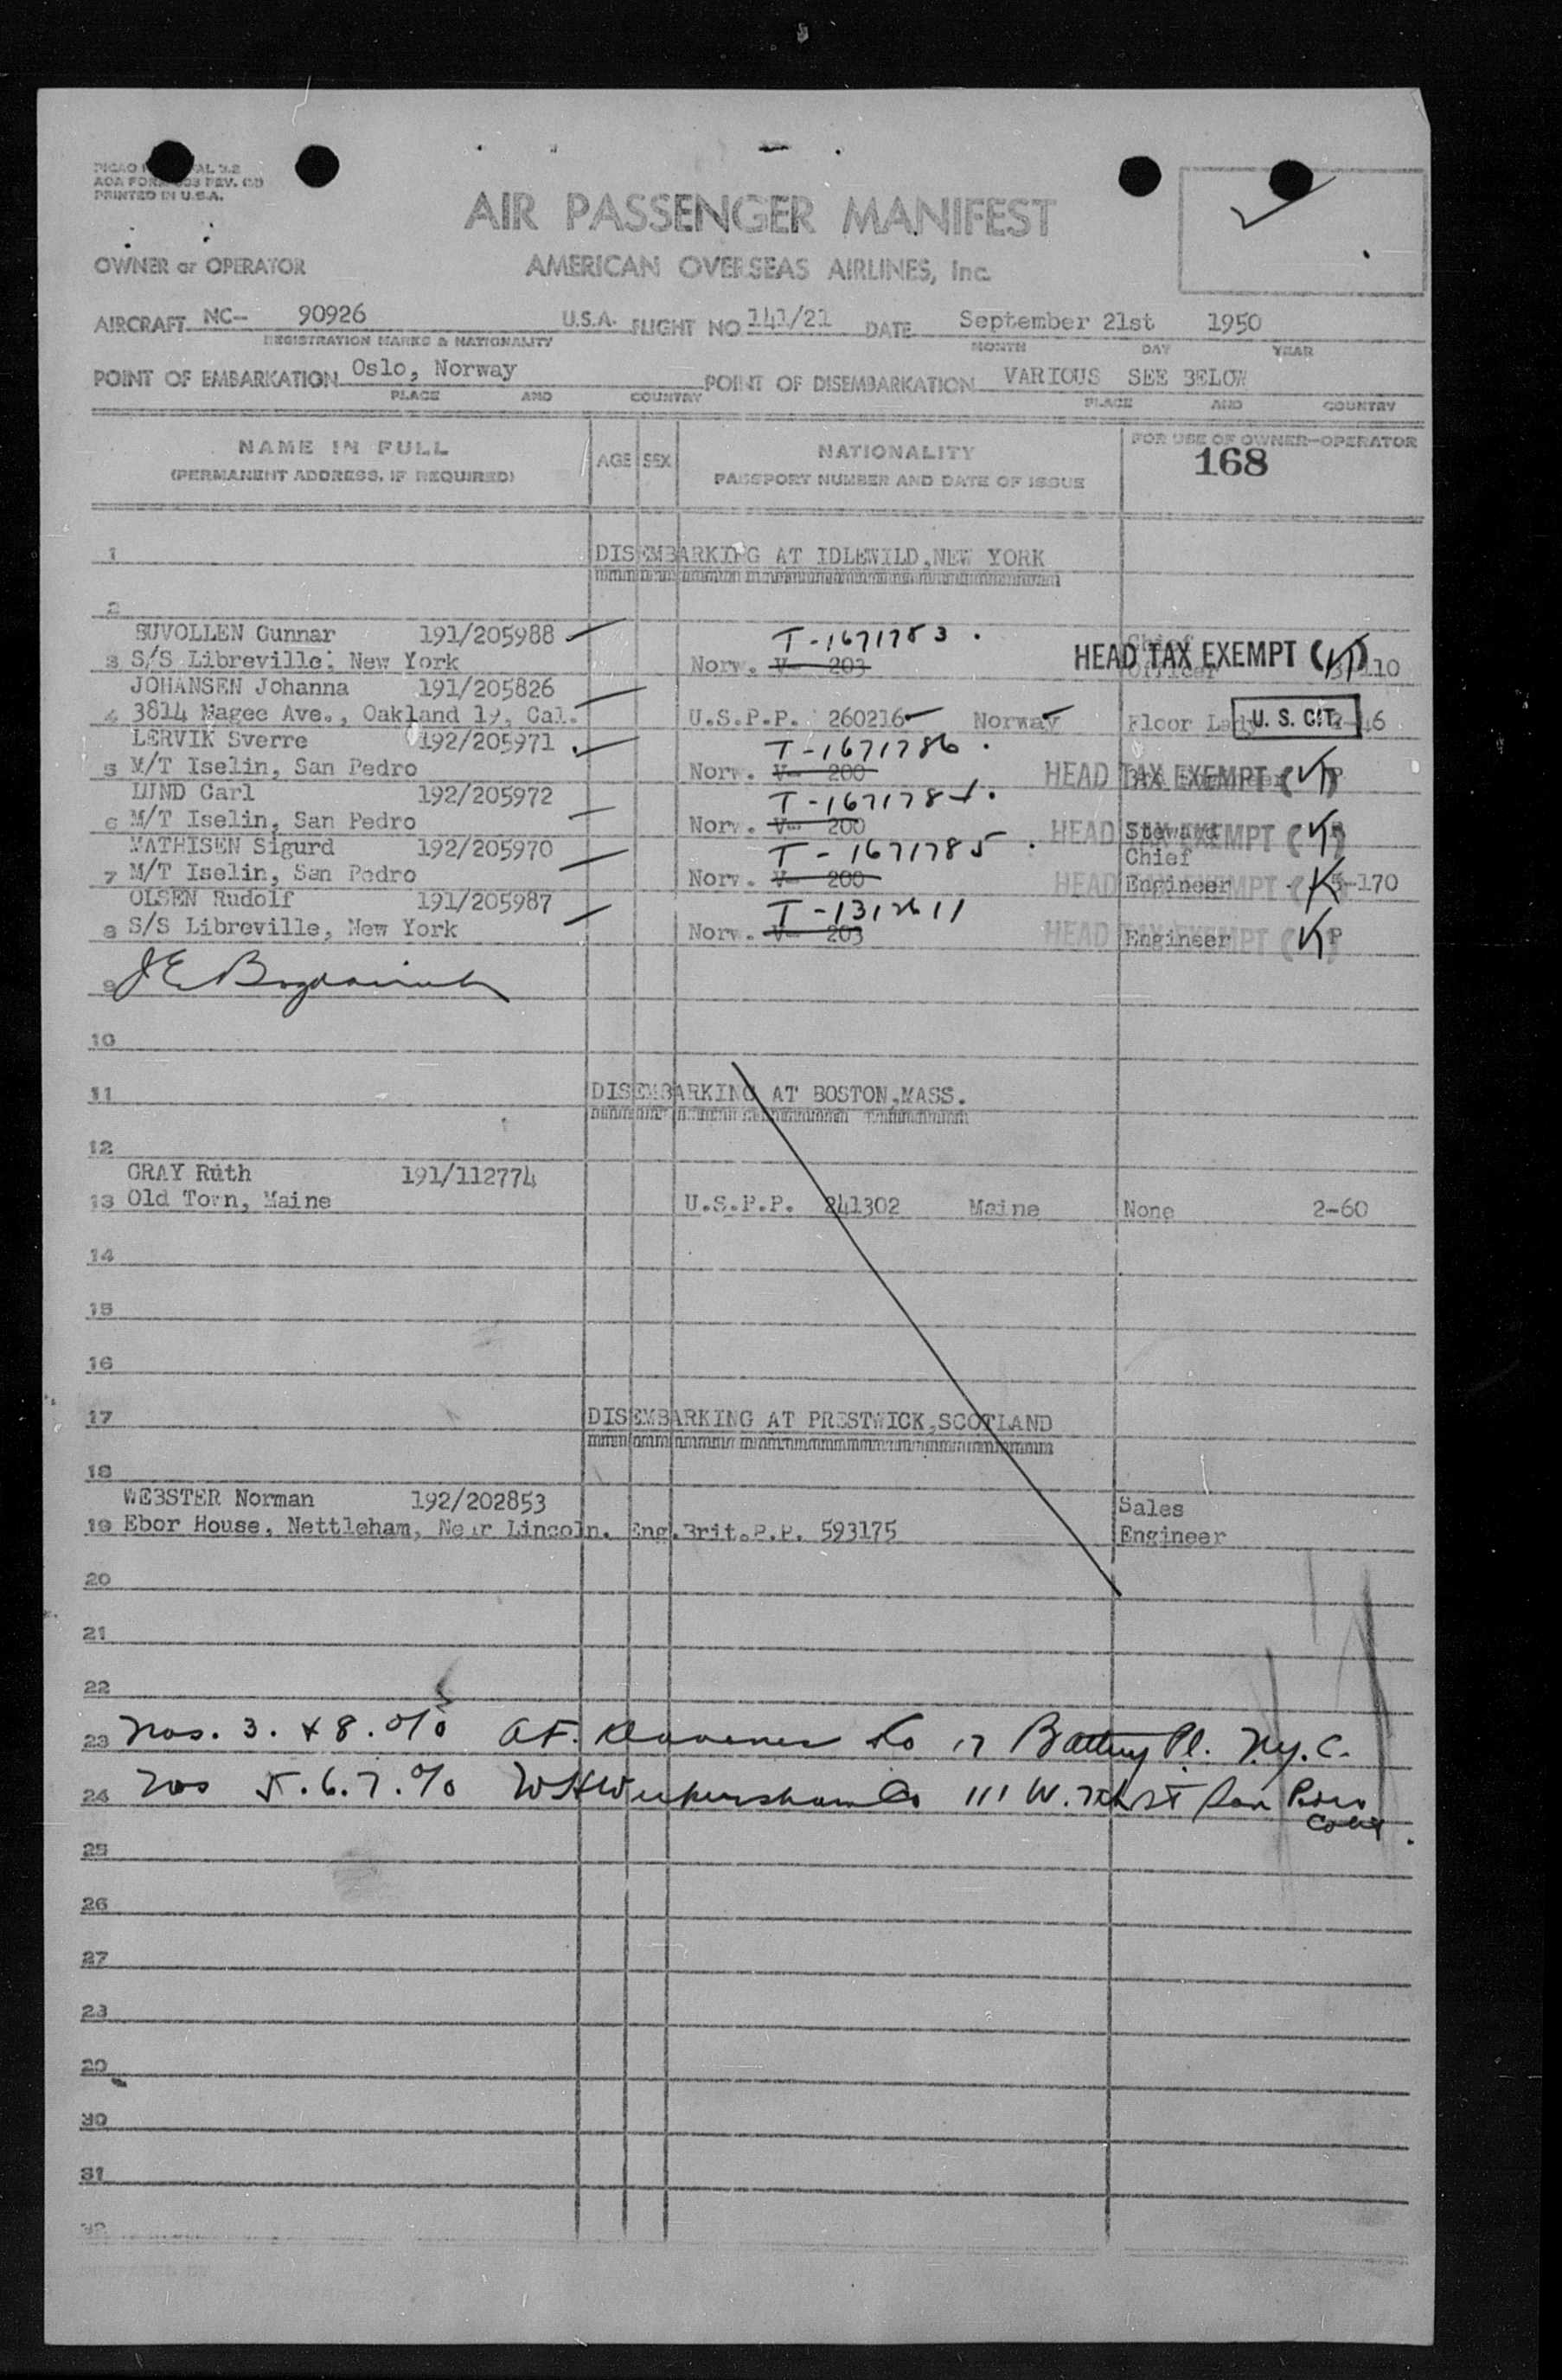 PRINTED IN U.S.A.
AIR PASSENGER MANIFEST
OWNER or OPERATOR AMERICAN OVERSEAS AIRLINES, Inc.
AIRCRAFT NC- 90926 U.S.A. FLIGHT NO 141/21 DATE September 21st 1950
REGISTRATION MARKS & NATIONALITY MONTH DAY YEAR
POINT OF EMBARKATION Oslo, Norway POINT OF DISEMBARKATION VARIOUS SEE BELOW
PLACE AND COUNTRY PLACE AND COUNTRY
NAME IN FULL AGE SEX NATIONALITY FOR USE OF OWNER-OPERATOR
(PERMANENT ADDRESS, IF REQUIRED) PASSPORT NUMBER AND DATE OF ISSUE 168
1 DISEMBARKING AT IDLEWILD, NEW YORK
2
SUVOLLEN Gunnar 191/205988 T-1671783 Chief
3 S/S Libreville, New York Norw. V- 203 HEAD TAX EXEMPT Officer 110
JOHANSEN Johanna 191/205826
4 3814 Magee Ave., Oakland 19, Cal. U.S.P.P. 260216 Norway Floor Lady U. S. CIT. 46
LERVIK Sverre 192/205971 T-1671786
5 M/T Iselin, San Pedro Norw. V- 200 HEAD TAX EXEMPT P
LUND Carl 192/205972 T-1671784
6 M/T Iselin, San Pedro Norw. V- 200 HEAD TAX EXEMPT Steward
MATHISEN Sigurd 192/205970 T-1671785 Chief
7 M/T Iselin, San Pedro Norw. V- 200 HEAD TAX EXEMPT Engineer 170
OLSEN Rudolf 191/205987 T-1312611
8 S/S Libreville, New York Norw. V- 203 HEAD TAX EXEMPT Engineer P
9
10
11 DISEMBARKING AT BOSTON, MASS.
12
GRAY Ruth 191/112774
13 Old Town, Maine U.S.P.P. 241302 Maine None 2-60
14
15
16
17 DISEMBARKING AT PRESTWICK, SCOTLAND
18
WEBSTER Norman 192/202853 Sales
19 Ebor House, Nettleham, Near Lincoln. Eng. Brit.P.P. 593175 Engineer
20
21
22
23 Nos. 3. & 8. c/o A.F. Co 17 Battery Pl. N.Y.C.
24 Nos 5.6.7. c/o W H Wickersham Co 111 W. 7th St San Pedro
Calif.
25
26
27
28
29
30
31
32